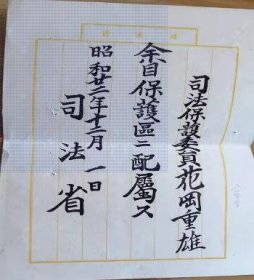 司法保護委員花岡重雄
余目保護區ニ配屬ス
昭和廿二年十二月一日
司法省